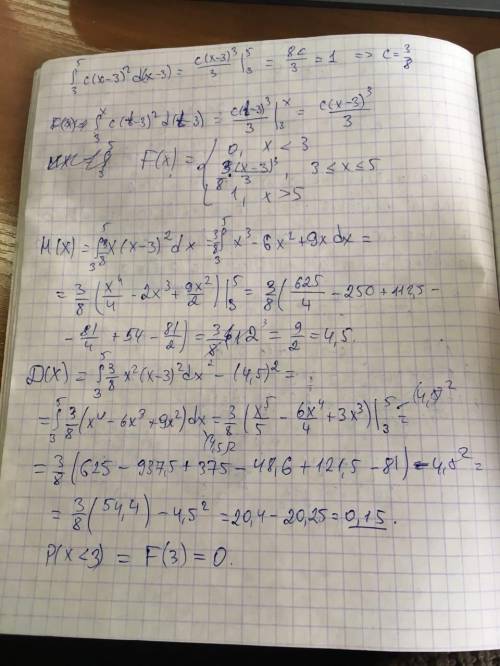 ∫₃⁵ c(x-3)² d(x-3) = c(x-3)³/3 |₃⁵ = 8c/3 = 1 => c = 3/8
F(x) = ∫₃ˣ c(t-3)² d(t-3) = c(t-3)³/3 |₃ˣ = c(x-3)³/3
F(x) = { 0, x < 3
3/8 · (x-3)³/3, 3 ≤ x ≤ 5
1, x > 5
M(X) = ∫₃⁵ 3/8 x(x-3)² dx = 3/8 ∫₃⁵ x³ - 6x² + 9x dx =
= 3/8 (x⁴/4 - 2x³ + 9x²/2) |₃⁵ = 3/8 (625/4 - 250 + 112,5 -
- 81/4 + 54 - 81/2) = 3/8 · 12 = 9/2 = 4,5.
D(X) = ∫₃⁵ 3/8 x²(x-3)² dx - (4,5)² =
= ∫₃⁵ 3/8 (x⁴ - 6x³ + 9x²) dx = 3/8 (x⁵/5 - 6x⁴/4 + 3x³) |₃⁵ - (4,5)² =
= 3/8 (625 - 937,5 + 375 - 48,6 + 121,5 - 81) - 4,5² =
= 3/8 (54,4) - 4,5² = 20,4 - 20,25 = 0,15.
P(X<3) = F(3) = 0.